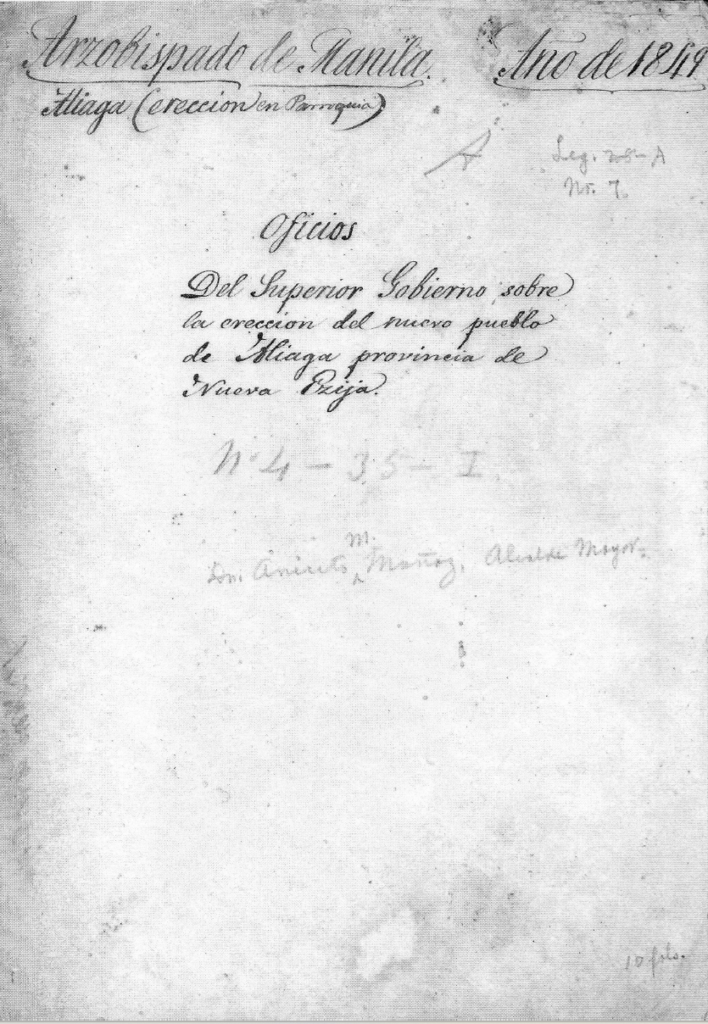 Arzobispado de Manila. Año de 1849
Aliaga (ereccion en Parroquia)
A
Leg. - A
Nr. 7.
Oficios
Del Superior Gobierno, sobre
la creccion del nuevo pueblo
de Aliaga provincia de
Nueva Ezija.
Nº 4 - 35 - I
m.
Dn. Aniceto Muñoz, Alcalde Mayor.
10 folo.